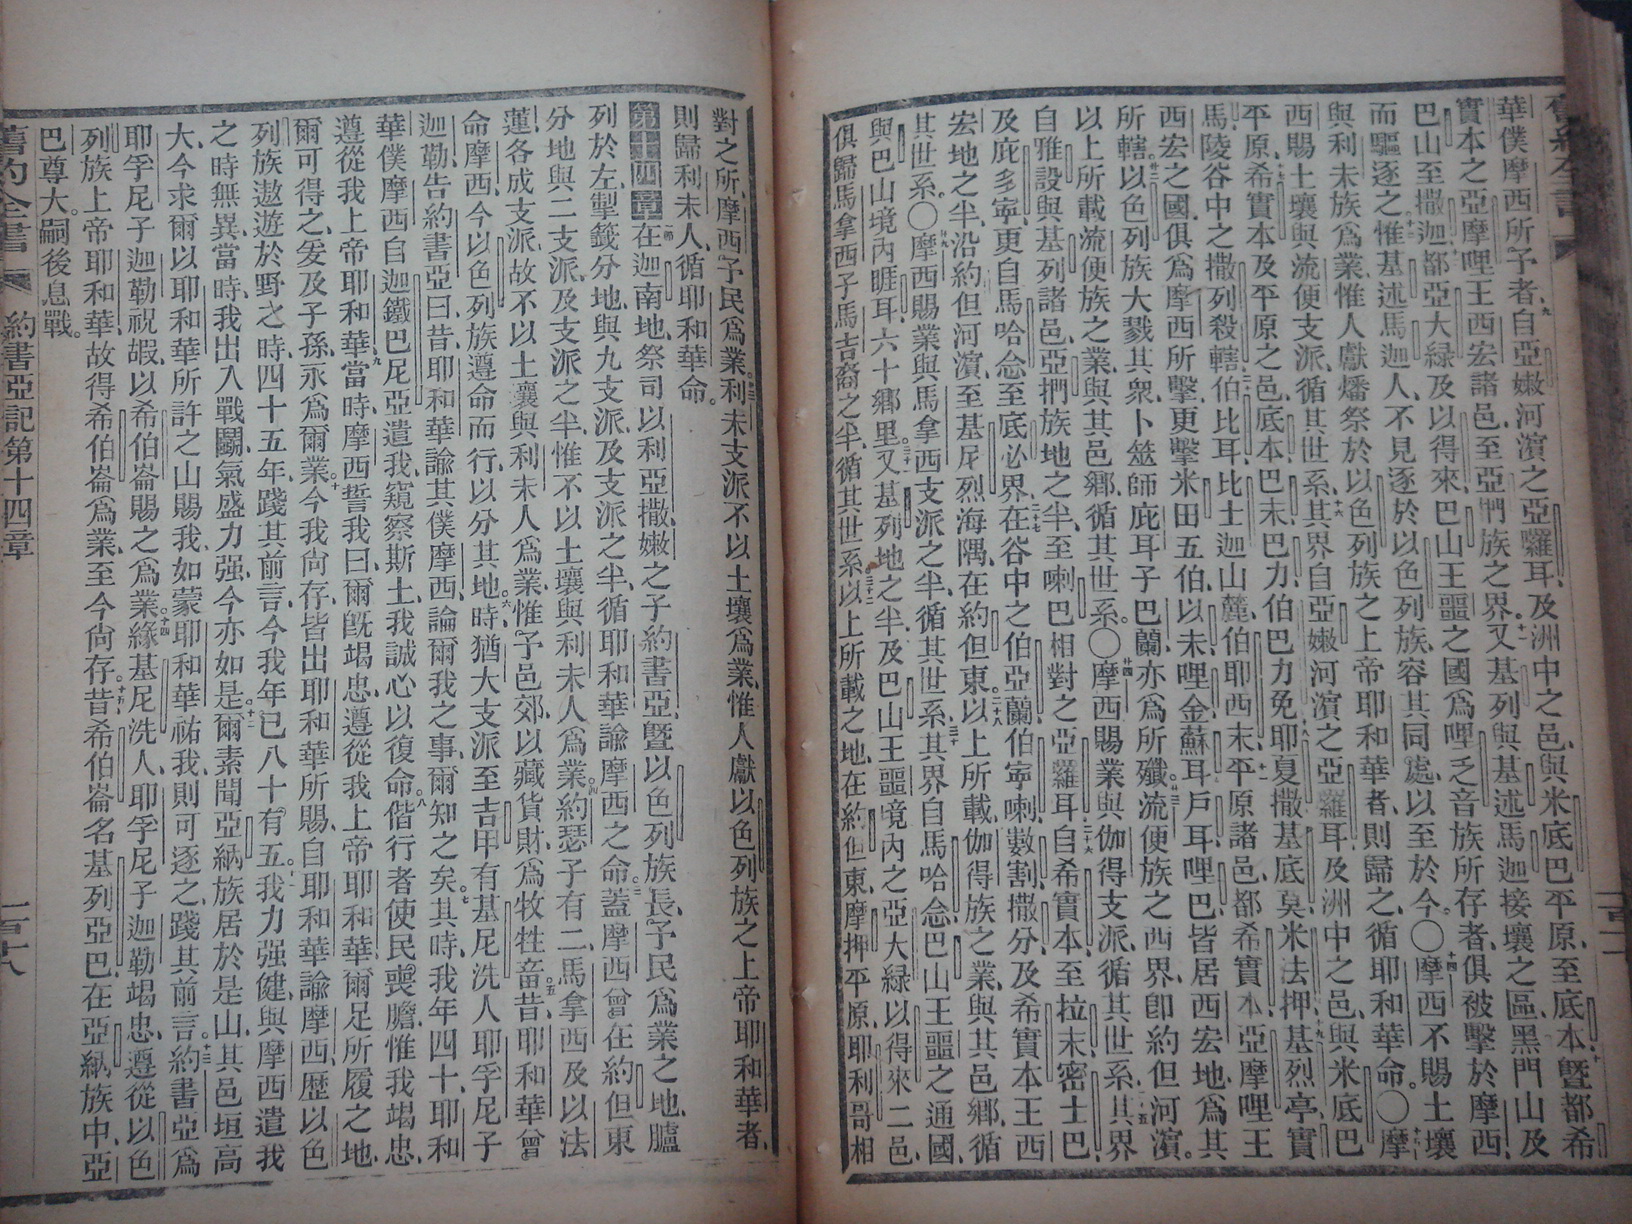 舊約全書
華僕摩西所予者、自亞嫩河濵之亞囉耳、及洲中之邑、與米底巴平原、至底本、暨都希
實本之亞摩哩王西宏諸邑、至亞捫族之界、又基列與基述馬迦接壤之區、黑門山及
巴山至撒迦、都亞大綠及以得來、巴山王噩之國、爲哩乏音族所存者、俱被擊於摩西、
而驅逐之、惟基述馬迦人不見逐於以色列族、容其同處、以至於今。〇摩西不賜土壤
與利未族爲業、惟人獻燔祭於以色列族之上帝耶和華者、則歸之、循耶和華命。〇摩
西賜土壤與流便支派、循其世系、其界自亞嫩河濵之亞囉耳及洲中之邑、與米底巴
平原、希實本及平原之邑、底本、巴末巴力、伯巴力免、耶夏撒、基底莫、米法押、基烈亭、實
馬、陵谷中之撒列殺轄、伯比耳、比士迦山麓、伯耶西末、平原諸邑、都希實本亞摩哩王
西宏之國、俱爲摩西所擊、更擊米田五伯、以未、哩金、蘇耳、戶耳、哩巴、皆居西宏地、爲其
所轄。以色列族大戮其衆、卜筮師庇耳子巴蘭亦爲所殲。流便族之西界、卽約但河濵。
以上所載流便族之業、與其邑鄉、循其世系。〇摩西賜業與伽得支派、循其世系、其界
自雅設與基列諸邑、亞捫族地之半、至喇巴相對之亞囉耳、自希實本至拉末密士巴、
及庇多寧、更自馬哈念至底必界、在谷中之伯亞蘭、伯寧喇、數割、撒分、及希實本王西
宏地之半、沿約但河濵、至基尼烈海隅、在約但東。以上所載伽得族之業、與其邑鄉、循
其世系。〇摩西賜業與馬拿西支派之半、循其世系、其界自馬哈念、巴山王噩之通國、
與巴山境內睚耳六十鄉里。又基列地之半、及巴山王噩境內之亞大綠、以得來二邑、
俱歸馬拿西子馬吉裔之半、循其世系。以上所載之地、在約但東、摩押平原、耶利哥相
對之所、摩西予民爲業。利未支派不以土壤爲業、惟人獻以色列族之上帝耶和華者、
則歸利未人、循耶和華命。
第十四章 在迦南地、祭司以利亞撒、嫩之子約書亞、暨以色列族長、予民爲業之地、臚
列於左、掣籤分地、與九支派、及支派之半、循耶和華諭摩西之命。蓋摩西曾在約但東
分地與二支派、及支派之半、惟不以土壤與利未人爲業。約瑟子有二、馬拿西及以法
蓮、各成支派、故不以土壤與利未人爲業、惟予邑郊、以藏貨財、爲牧牲畜。昔耶和華曾
命摩西、今以色列族遵命而行、以分其地。時猶大支派至吉甲、有基尼洗人耶孚尼子
迦勒、告約書亞曰、昔耶和華諭其僕摩西、論爾我之事、爾知之矣。其時我年四十、耶和
華僕摩西自迦鐵巴尼亞遣我、窺察斯土、我誠心以復命。偕行者使民喪膽、惟我竭忠、
遵從我上帝耶和華。當時摩西誓我曰、爾旣竭忠、遵從我上帝耶和華、爾足所履之地、
爾可得之、爰及子孫、永爲爾業。今我尙存、皆出耶和華所賜、自耶和華諭摩西、歷以色
列族遨遊於野之時、四十五年、踐其前言、今我年已八十有五。我力强健、與摩西遣我
之時無異、當時我出入戰鬬、氣盛力强、今亦如是。爾素聞亞納族居於是山、其邑垣高
大、今求爾以耶和華所許之山賜我、如蒙耶和華祐我、則可逐之、踐其前言。約書亞爲
耶孚尼子迦勒祝嘏、以希伯崙賜之爲業。緣基尼洗人耶孚尼子迦勒竭忠、遵從以色
列族上帝耶和華、故得希伯崙爲業、至今尙存。昔希伯崙名基列亞巴、在亞納族中、亞
巴尊大、嗣後息戰。
舊約全書 約書亞記第十四章 一百十八